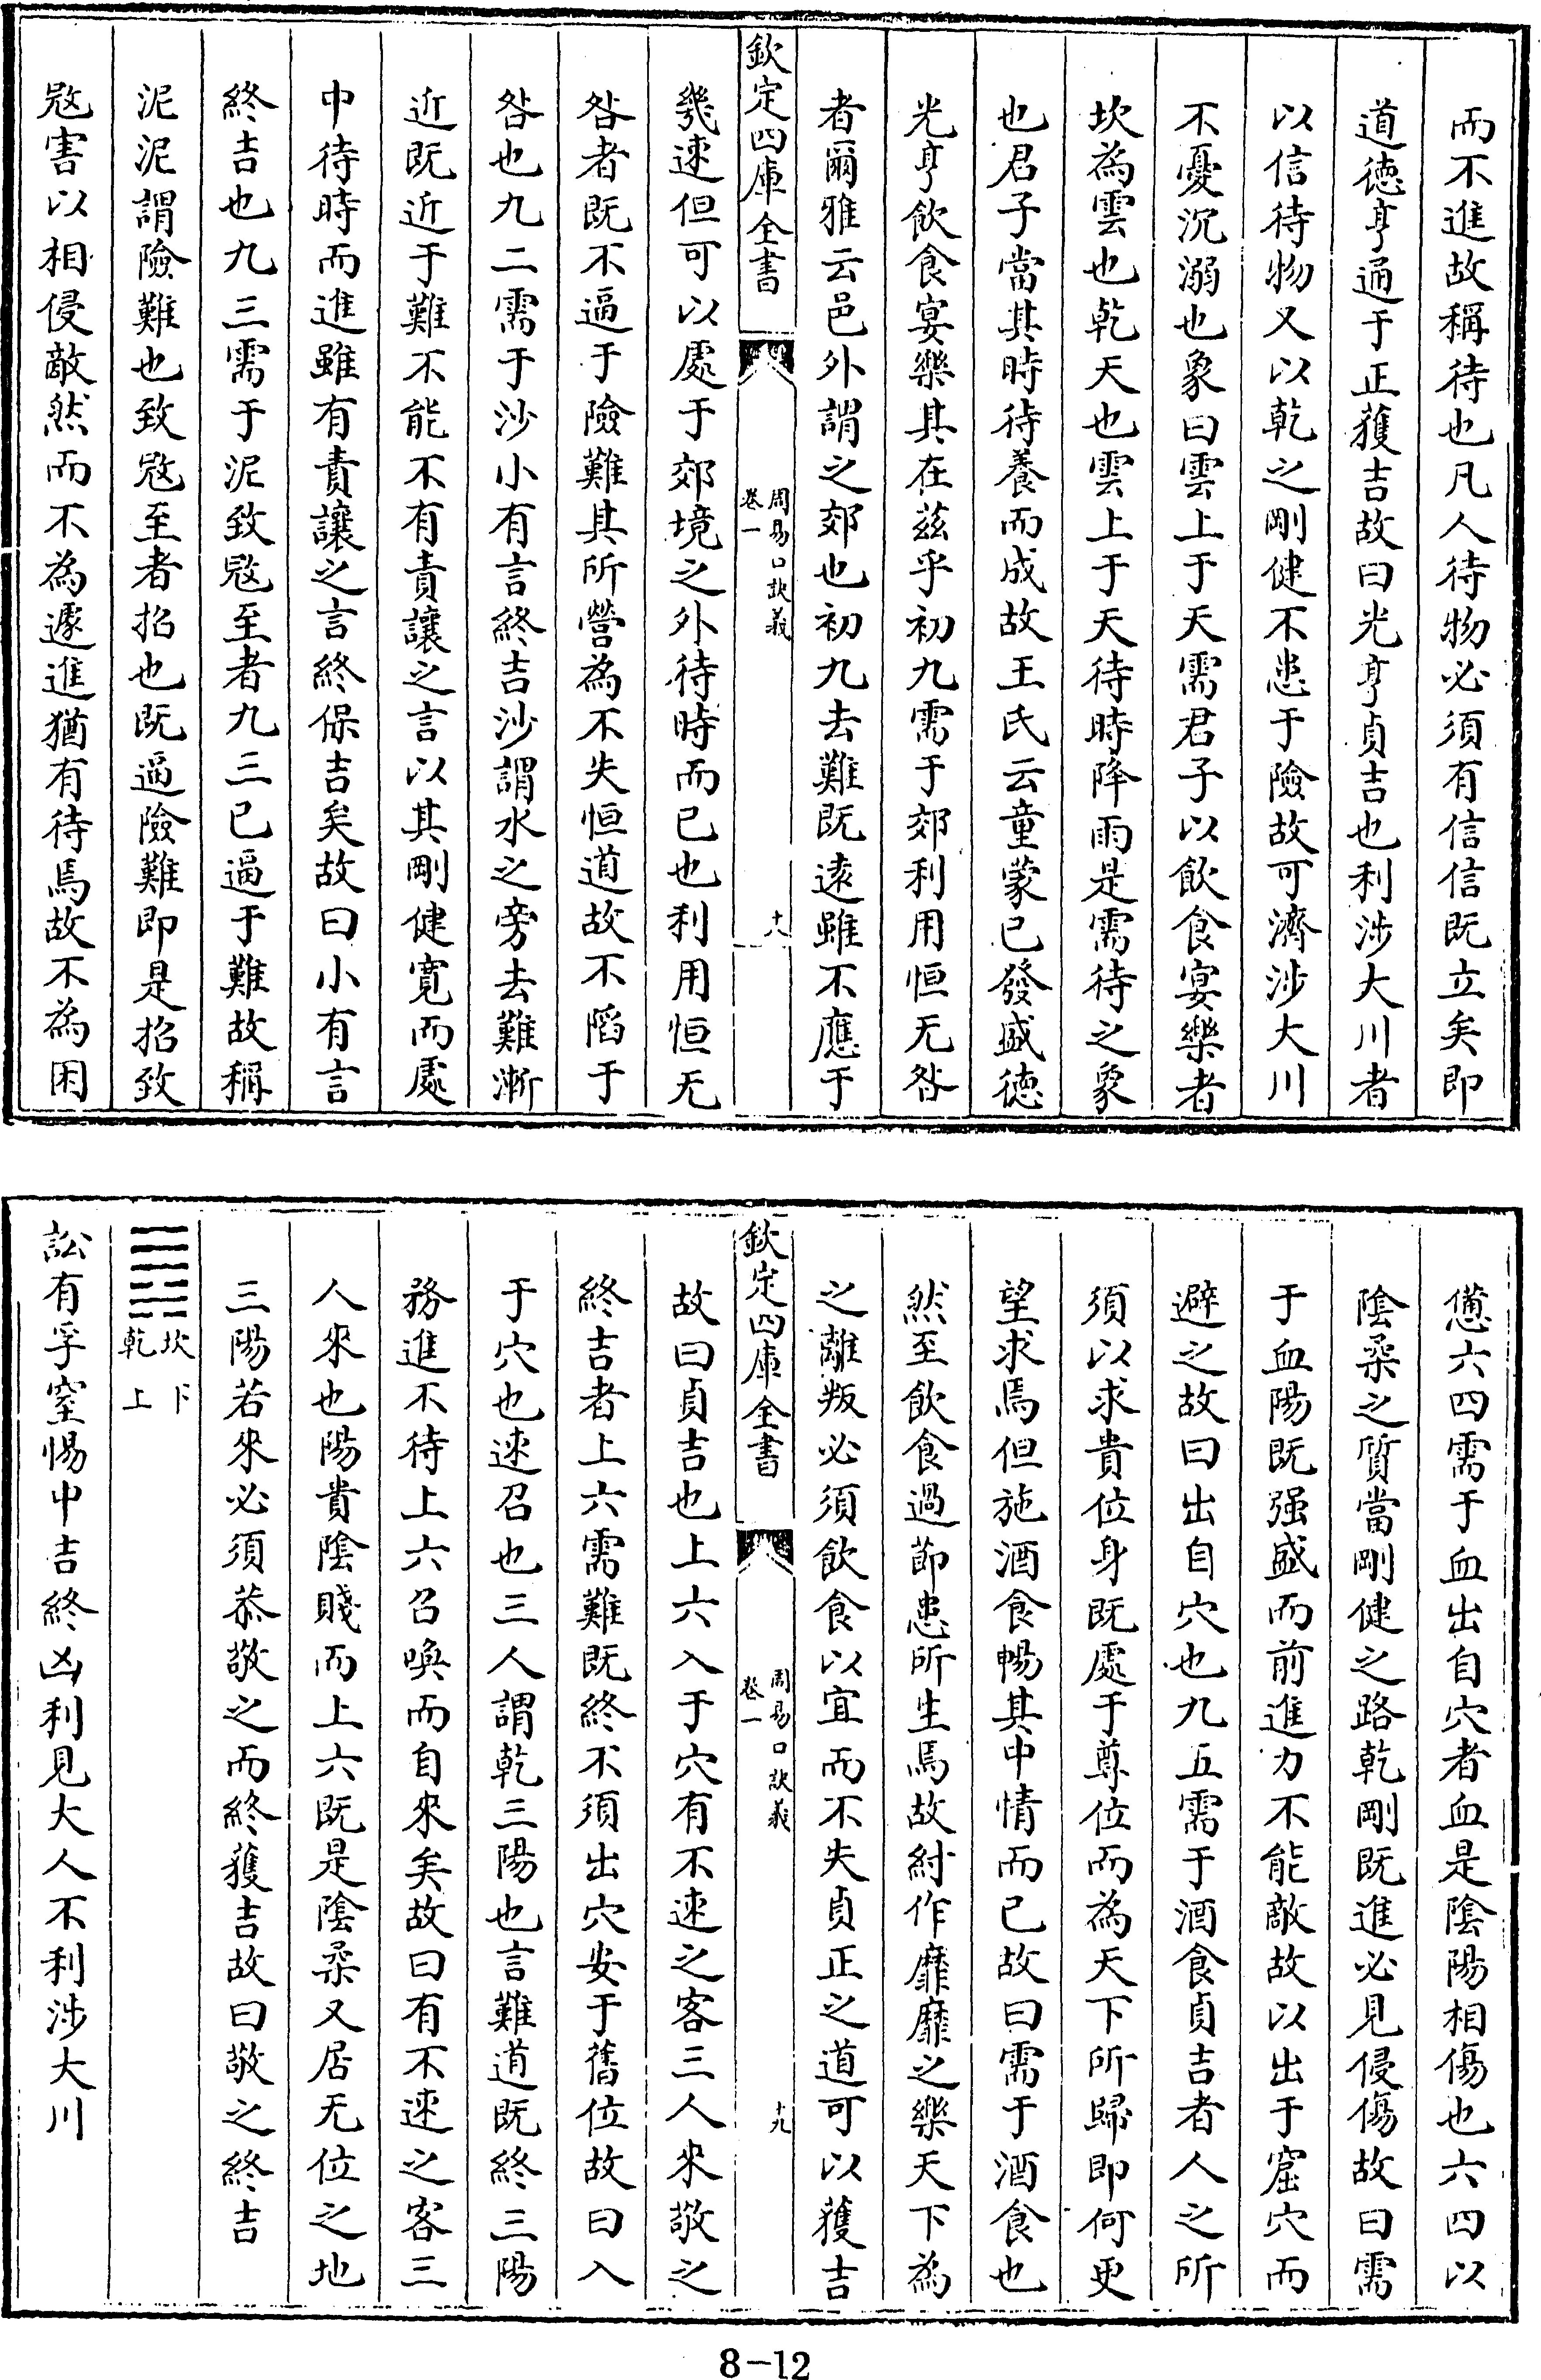 而不進故稱待也凡人待物必須有信信既立矣即
道徳亨通于正獲吉故曰光亨貞吉也利涉大川者
以信待物又以乾之剛健不患于險故可濟涉大川
不憂沉溺也象曰雲上于天需君子以飲食宴樂者
坎為雲也乾天也雲上于天待時降雨是需待之象
也君子當其時待養而成故王氏云童蒙已發盛徳
光亨飲食宴樂其在兹乎初九需于郊利用恒无咎
者爾雅云邑外謂之郊也初九去難既逺雖不應于
欽定四庫全書
周易口訣義
卷一
十八
幾速但可以處于郊境之外待時而已也利用恒无
咎者既不逼于險難其所營為不失恒道故不䧟于
咎也九二需于沙小有言終吉沙謂水之旁去難漸
近既近于難不能不有責讓之言以其剛健寛而處
中待時而進雖有責讓之言終保吉矣故曰小有言
終吉也九三需于泥致宼至者九三已逼于難故稱
泥泥謂險難也致宼至者招也既逼險難即是招致
宼害以相侵敵然而不為遽進猶有待焉故不為困
憊六四需于血出自穴者血是陰陽相傷也六四以
陰柔之質當剛健之路乾剛既進必見侵傷故曰需
于血陽既强盛而前進力不能敵故以出于窟穴而
避之故曰出自穴也九五需于酒食貞吉者人之所
須以求貴位身既處于尊位而為天下所歸即何更
望求焉但施酒食暢其中情而已故曰需于酒食也
然至飲食過節患所生焉故紂作靡靡之樂天下為
之離叛必須飲食以宜而不失貞正之道可以獲吉
欽定四庫全書
周易口訣義
卷一
十九
故曰貞吉也上六入于穴有不速之客三人來敬之
終吉者上六需難既終不須出穴安于舊位故曰入
于穴也速召也三人謂乾三陽也言難道既終三陽
務進不待上六召喚而自來矣故曰有不速之客三
人來也陽貴陰賤而上六既是陰柔又居无位之地
三陽若來必須恭敬之而終獲吉故曰敬之終吉
坎下
乾上
訟有孚窒惕中吉終凶利見大人不利涉大川
8-12